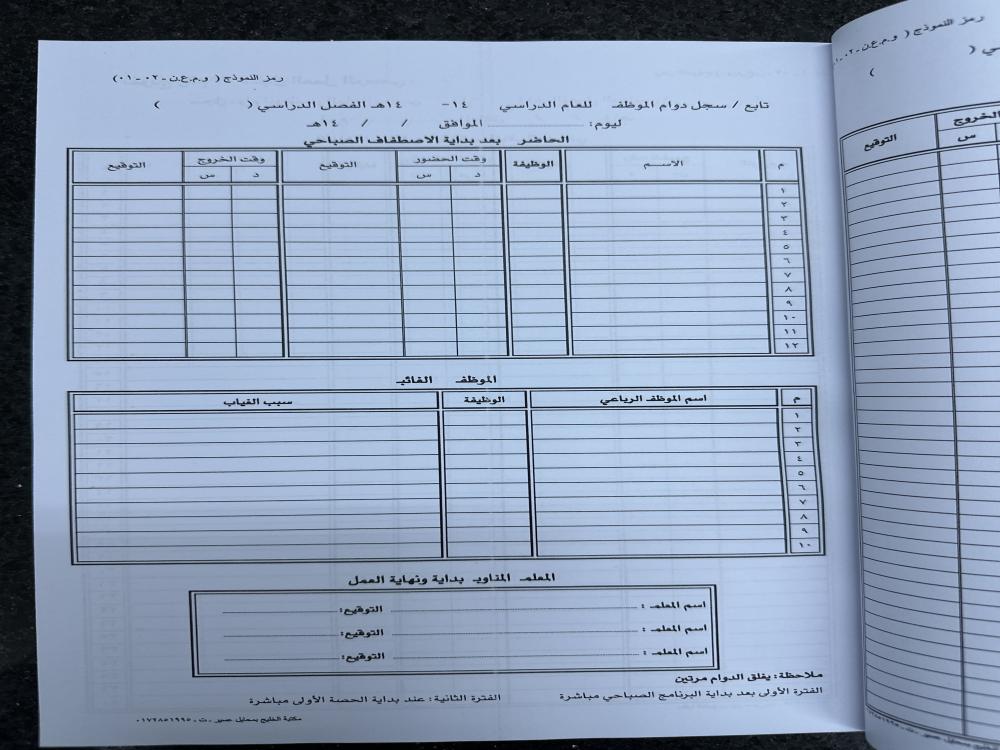 رمز النموذج ( و.م.ع.ن-٠٢-٠١)
تابع / سجل دوام الموظف للعام الدراسي ١٤ - ١٤هـ الفصل الدراسي ( )
ليوم: الموافق / / ١٤هـ
الحاضر بعد بداية الاصطفاف الصباحي
م الاسم الوظيفة وقت الحضور التوقيع وقت الخروج التوقيع
د س د س
١
٢
٣
٤
٥
٦
٧
٨
٩
١٠
١١
١٢
الموظف الغائب
م اسم الموظف الرباعي الوظيفة سبب الغياب
١
٢
٣
٤
٥
٦
٧
٨
٩
١٠
المعلم المناوب بداية ونهاية العمل
اسم المعلم : التوقيع:
اسم المعلم : التوقيع:
اسم المعلم : التوقيع:
ملاحظة: يغلق الدوام مرتين
الفترة الأولى بعد بداية البرنامج الصباحي مباشرة الفترة الثانية: عند بداية الحصة الأولى مباشرة
مكتبة الخليج بمحايل عسير ـ ت ـ ٠١٧٢٨٥١٩٩٥
رمز النموذج ( و.م.ع.ن-٠٢-
الخروج
س
التوقيع